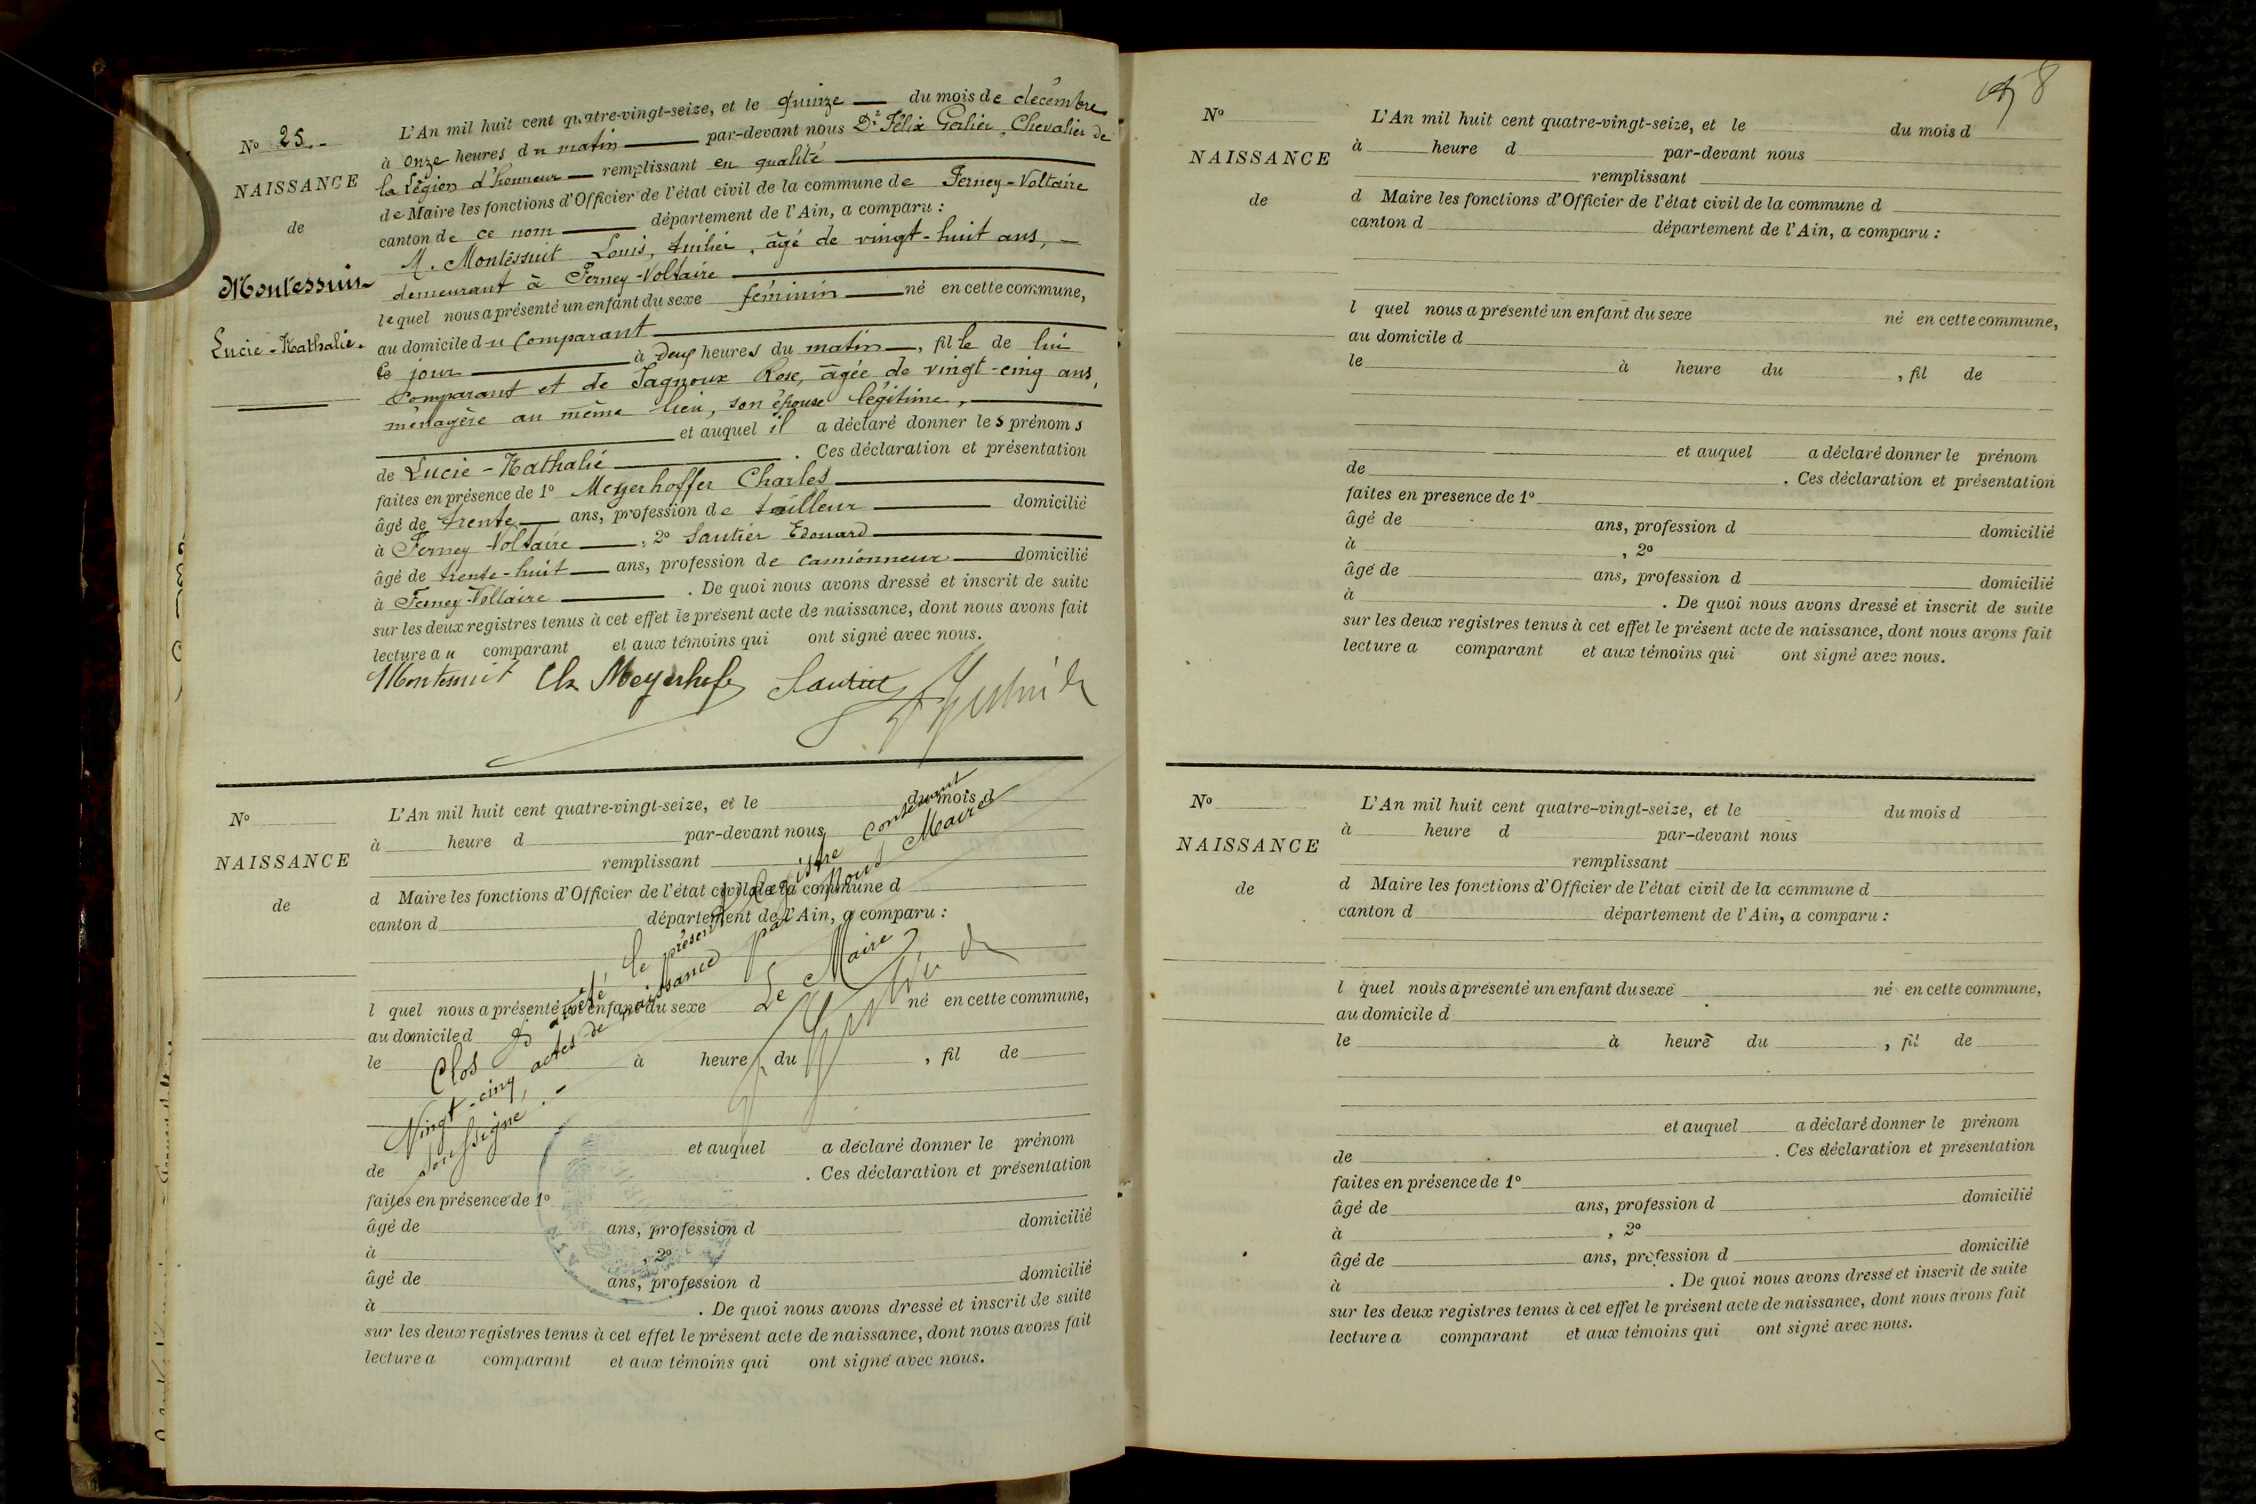 L'An mil huit cent quatre-vingt-seize, et le quinze du mois de décembre
à onze heures du matin par-devant nous Dr Félix Gerlier, Chevalier de
la Légion d'honneur remplissant en qualité
de Maire les fonctions d'Officier de l'état civil de la commune de Ferney-Voltaire
canton de ce nom département de l'Ain, a comparu :
M. Montessuit Louis, tuilier, âgé de vingt-huit ans,
demeurant à Ferney-Voltaire
lequel nous a présenté un enfant du sexe féminin né en cette commune,
au domicile du comparant
ce jour à deux heures du matin, fille de lui
comparant et de Jagnoux Rose, âgée de vingt-cinq ans,
ménagère au même lieu, son épouse légitime,
et auquel il a déclaré donner les prénoms
de Lucie-Nathalie . Ces déclaration et présentation
faites en présence de 1° Meyerhoffer Charles
âgé de trente ans, profession de tailleur domicilié
à Ferney-Voltaire, 2° Sautier Edouard
âgé de trente-huit ans, profession de camionneur domicilié
à Ferney-Voltaire . De quoi nous avons dressé et inscrit de suite
sur les deux registres tenus à cet effet le présent acte de naissance, dont nous avons fait
lecture au comparant et aux témoins qui ont signé avec nous.
Montessuit Ch Meyerhofer Sautier
N° 25.-
NAISSANCE
de
Montessuit
Lucie-Nathalie.
N°
NAISSANCE
de
L'An mil huit cent quatre-vingt-seize, et le du mois d
à heure d par-devant nous
remplissant
d Maire les fonctions d'Officier de l'état civil de la commune d
canton d département de l'Ain, a comparu :
l quel nous a présenté un enfant du sexe né en cette commune,
au domicile d
le à heure du , fil de
et auquel a déclaré donner le prénom
de . Ces déclaration et présentation
faites en présence de 1°
âgé de ans, profession d domicilié
à , 2°
âgé de ans, profession d domicilié
à . De quoi nous avons dressé et inscrit de suite
sur les deux registres tenus à cet effet le présent acte de naissance, dont nous avons fait
lecture a comparant et aux témoins qui ont signé avec nous.
Clos & arrêté le présent Registre contenant
Vingt-cinq actes de naissance par Nous Maire
soussigné.-
Le Maire
AIN
8
N°
NAISSANCE
de
L'An mil huit cent quatre-vingt-seize, et le du mois d
à heure d par-devant nous
remplissant
d Maire les fonctions d'Officier de l'état civil de la commune d
canton d département de l'Ain, a comparu :
l quel nous a présenté un enfant du sexe né en cette commune,
au domicile d
le à heure du , fil de
et auquel a déclaré donner le prénom
de . Ces déclaration et présentation
faites en presence de 1°
âgé de ans, profession d domicilié
à , 2°
âgé de ans, profession d domicilié
à . De quoi nous avons dressé et inscrit de suite
sur les deux registres tenus à cet effet le présent acte de naissance, dont nous avons fait
lecture a comparant et aux témoins qui ont signé avec nous.
N°
NAISSANCE
de
L'An mil huit cent quatre-vingt-seize, et le du mois d
à heure d par-devant nous
remplissant
d Maire les fonctions d'Officier de l'état civil de la commune d
canton d département de l'Ain, a comparu :
l quel nous a présenté un enfant du sexe né en cette commune,
au domicile d
le à heure du , fil de
et auquel a déclaré donner le prénom
de . Ces déclaration et présentation
faites en présence de 1°
âgé de ans, profession d domicilié
à , 2°
âgé de ans, profession d domicilié
à . De quoi nous avons dressé et inscrit de suite
sur les deux registres tenus à cet effet le présent acte de naissance, dont nous avons fait
lecture a comparant et aux témoins qui ont signé avec nous.